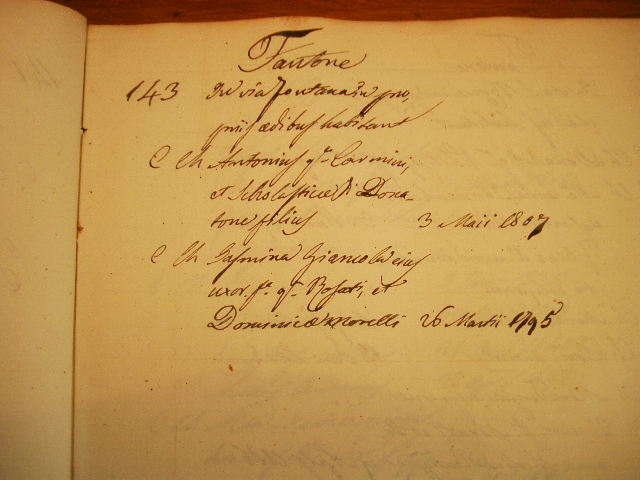 Fantone
143 In via Fontana in pro,
prijs ædibus habitant
C Ch Antonius q.m Carmini,
et Scholasticæ Di Dona-
tone filius 3 Maii 1807
C Ch Gasmina Giancola eius
uxor f.a q.m Rosati, et
Dominicæ Morelli 26 Martii 1795